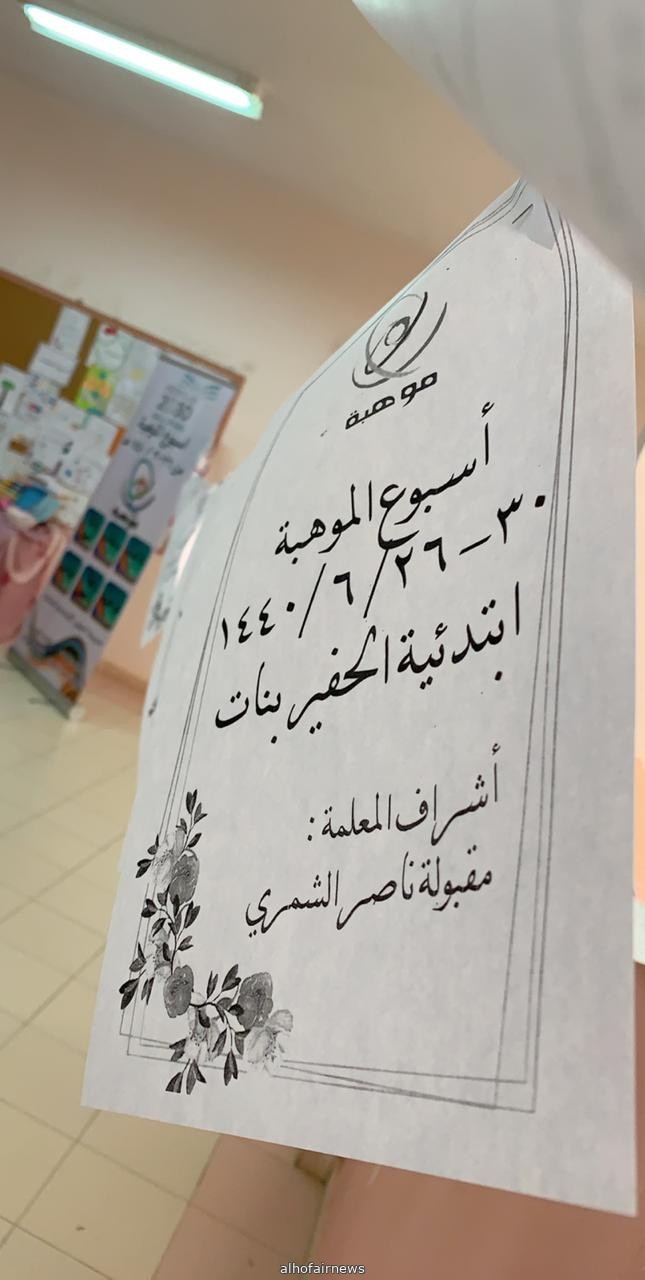 موهبة
أسبوع الموهبة
٣٠_٢٦/٦/١٤٤٠
ابتدئية الحفير بنات
أشراف المعلمة :
مقبولة ناصر الشمري
أسبوع الموهبة
موهبة
alhofairnews